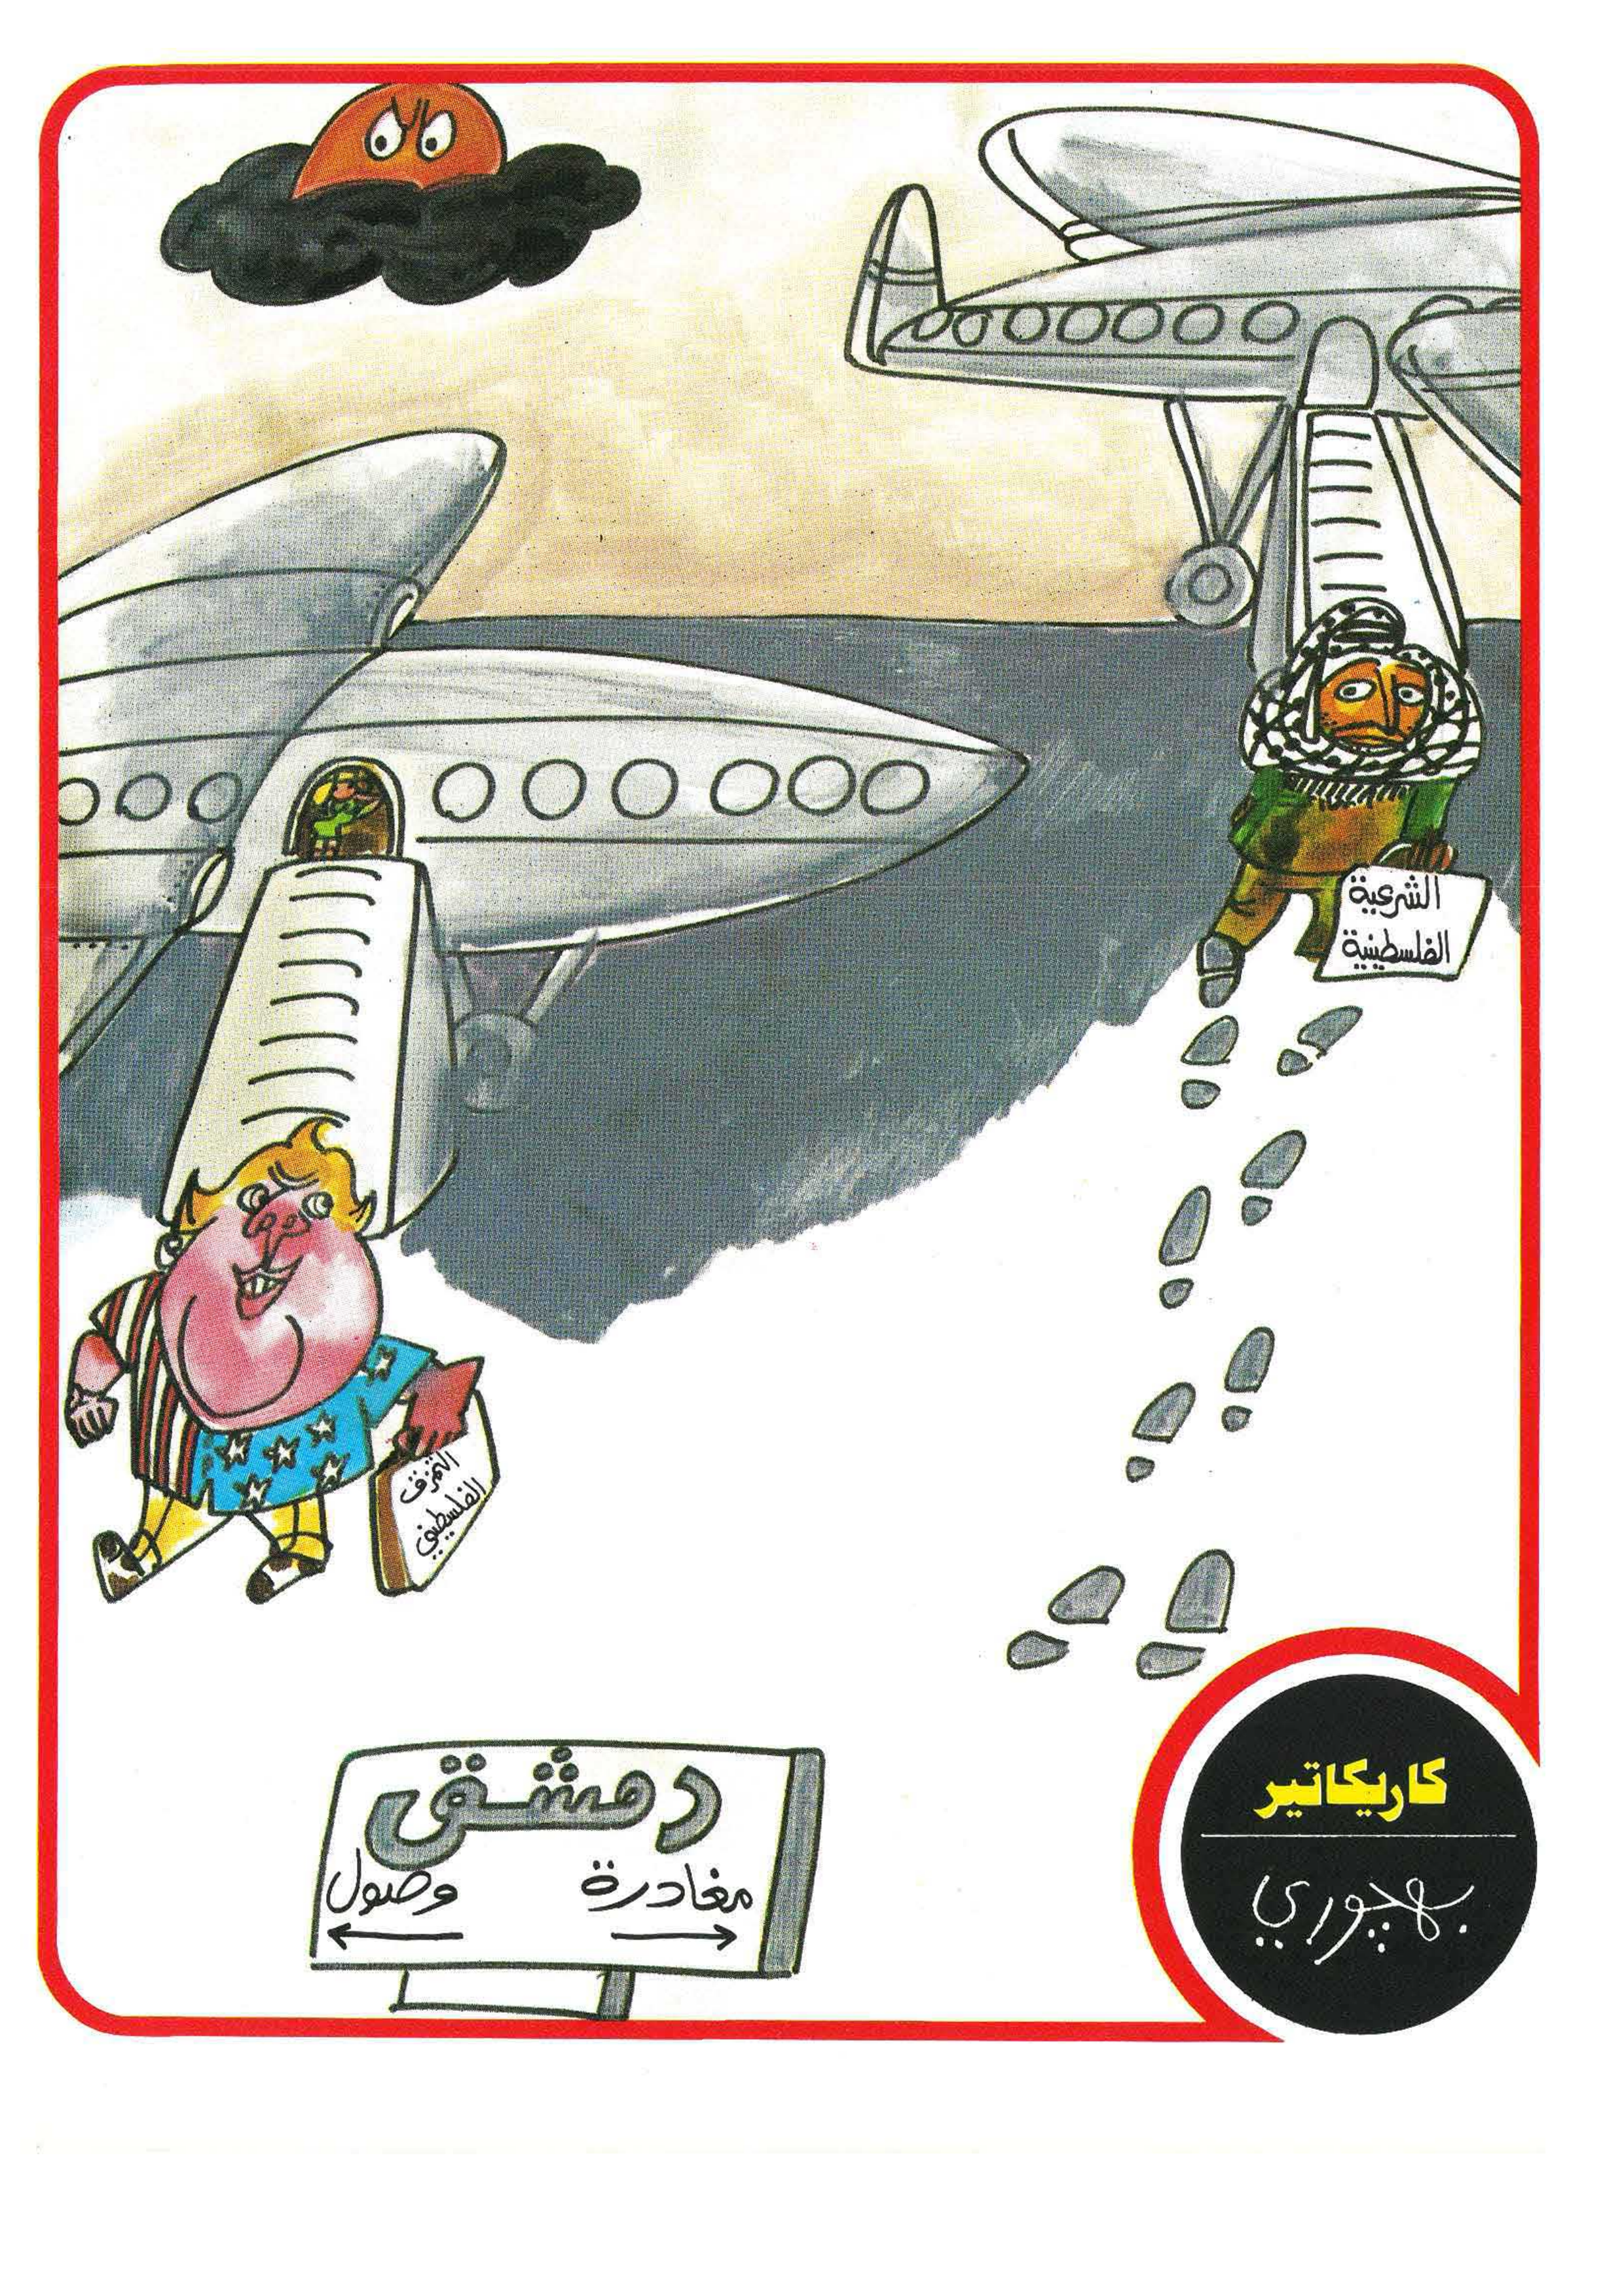 الشرعية
الفلسطينية
التمزق
الفلسطيني
دمشق
مغادرة وصول
كاريكاتير
بهجوري